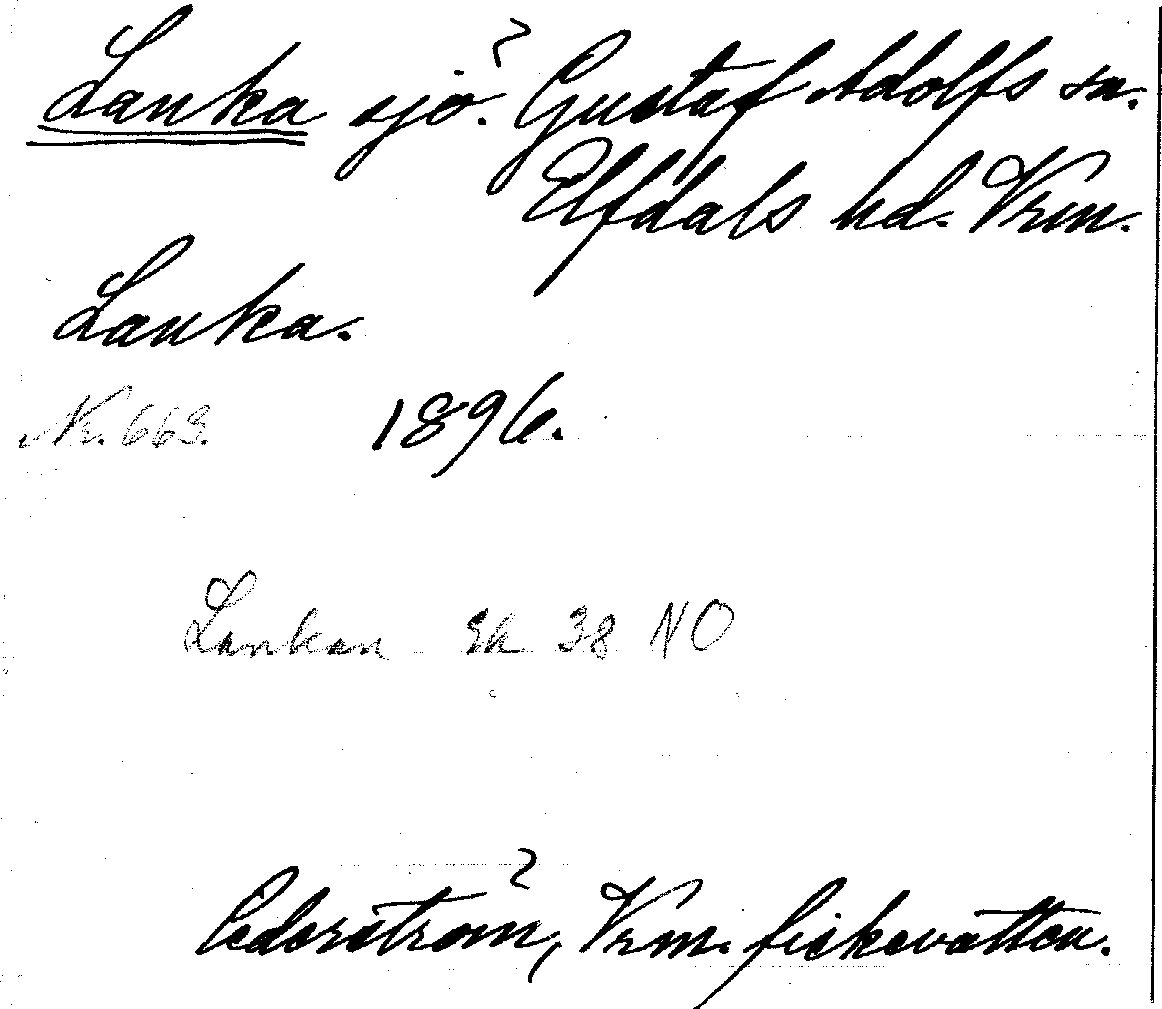 Lanka sjö. Gustaf Adolfs sn.
Elfdals hd. Vrm.
Lanka.
Nr. 663. 1896.
Lankan Ek 38 NO
Cederström, Vrm. fiskevatten.